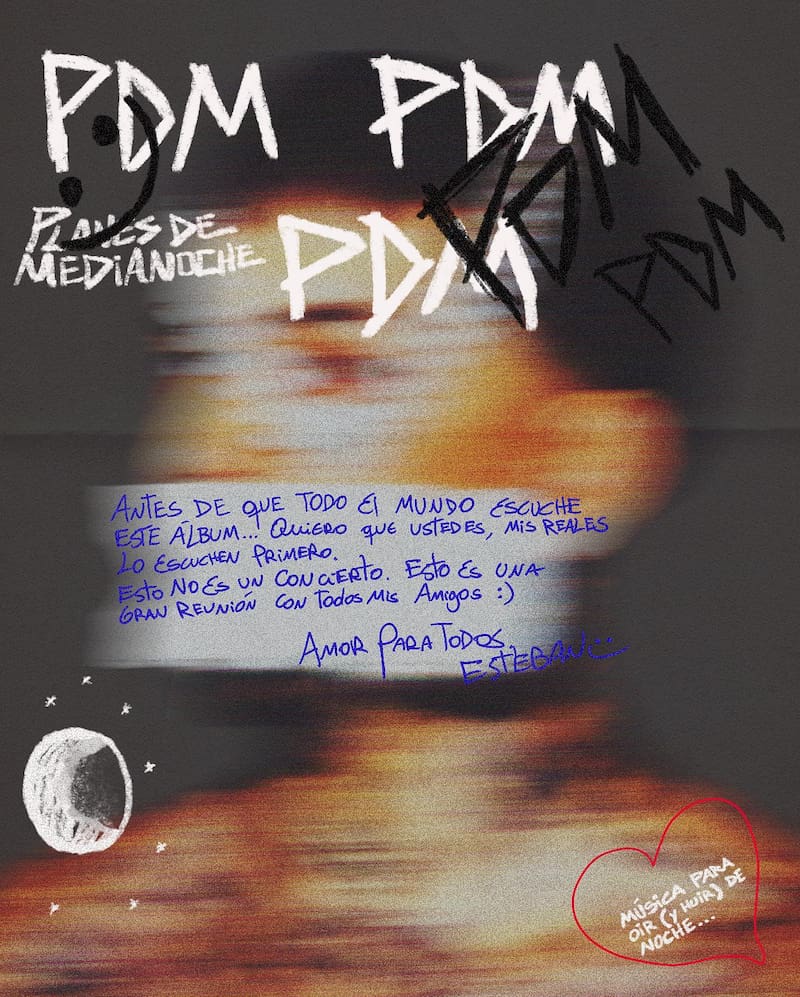 PDM PDM
PDM
PDM
PDM
PLANES DE
MEDIANOCHE
ANTES DE QUE TODO El MUNDO ESCUCHE
ESTE ÁLBUM... QUIERO QUE USTEDES, MIS REALES
LO ESCUCHEN PRIMERO.
ESTO NO ES UN CONCIERTO. ESTO ES UNA
GRAN REUNIÓN CON TODOS MIS AMIGOS :)
AMOR PARA TODOS.
ESTEBAN :)
MÚSICA PARA
OIR (Y HUIR) DE
NOCHE...